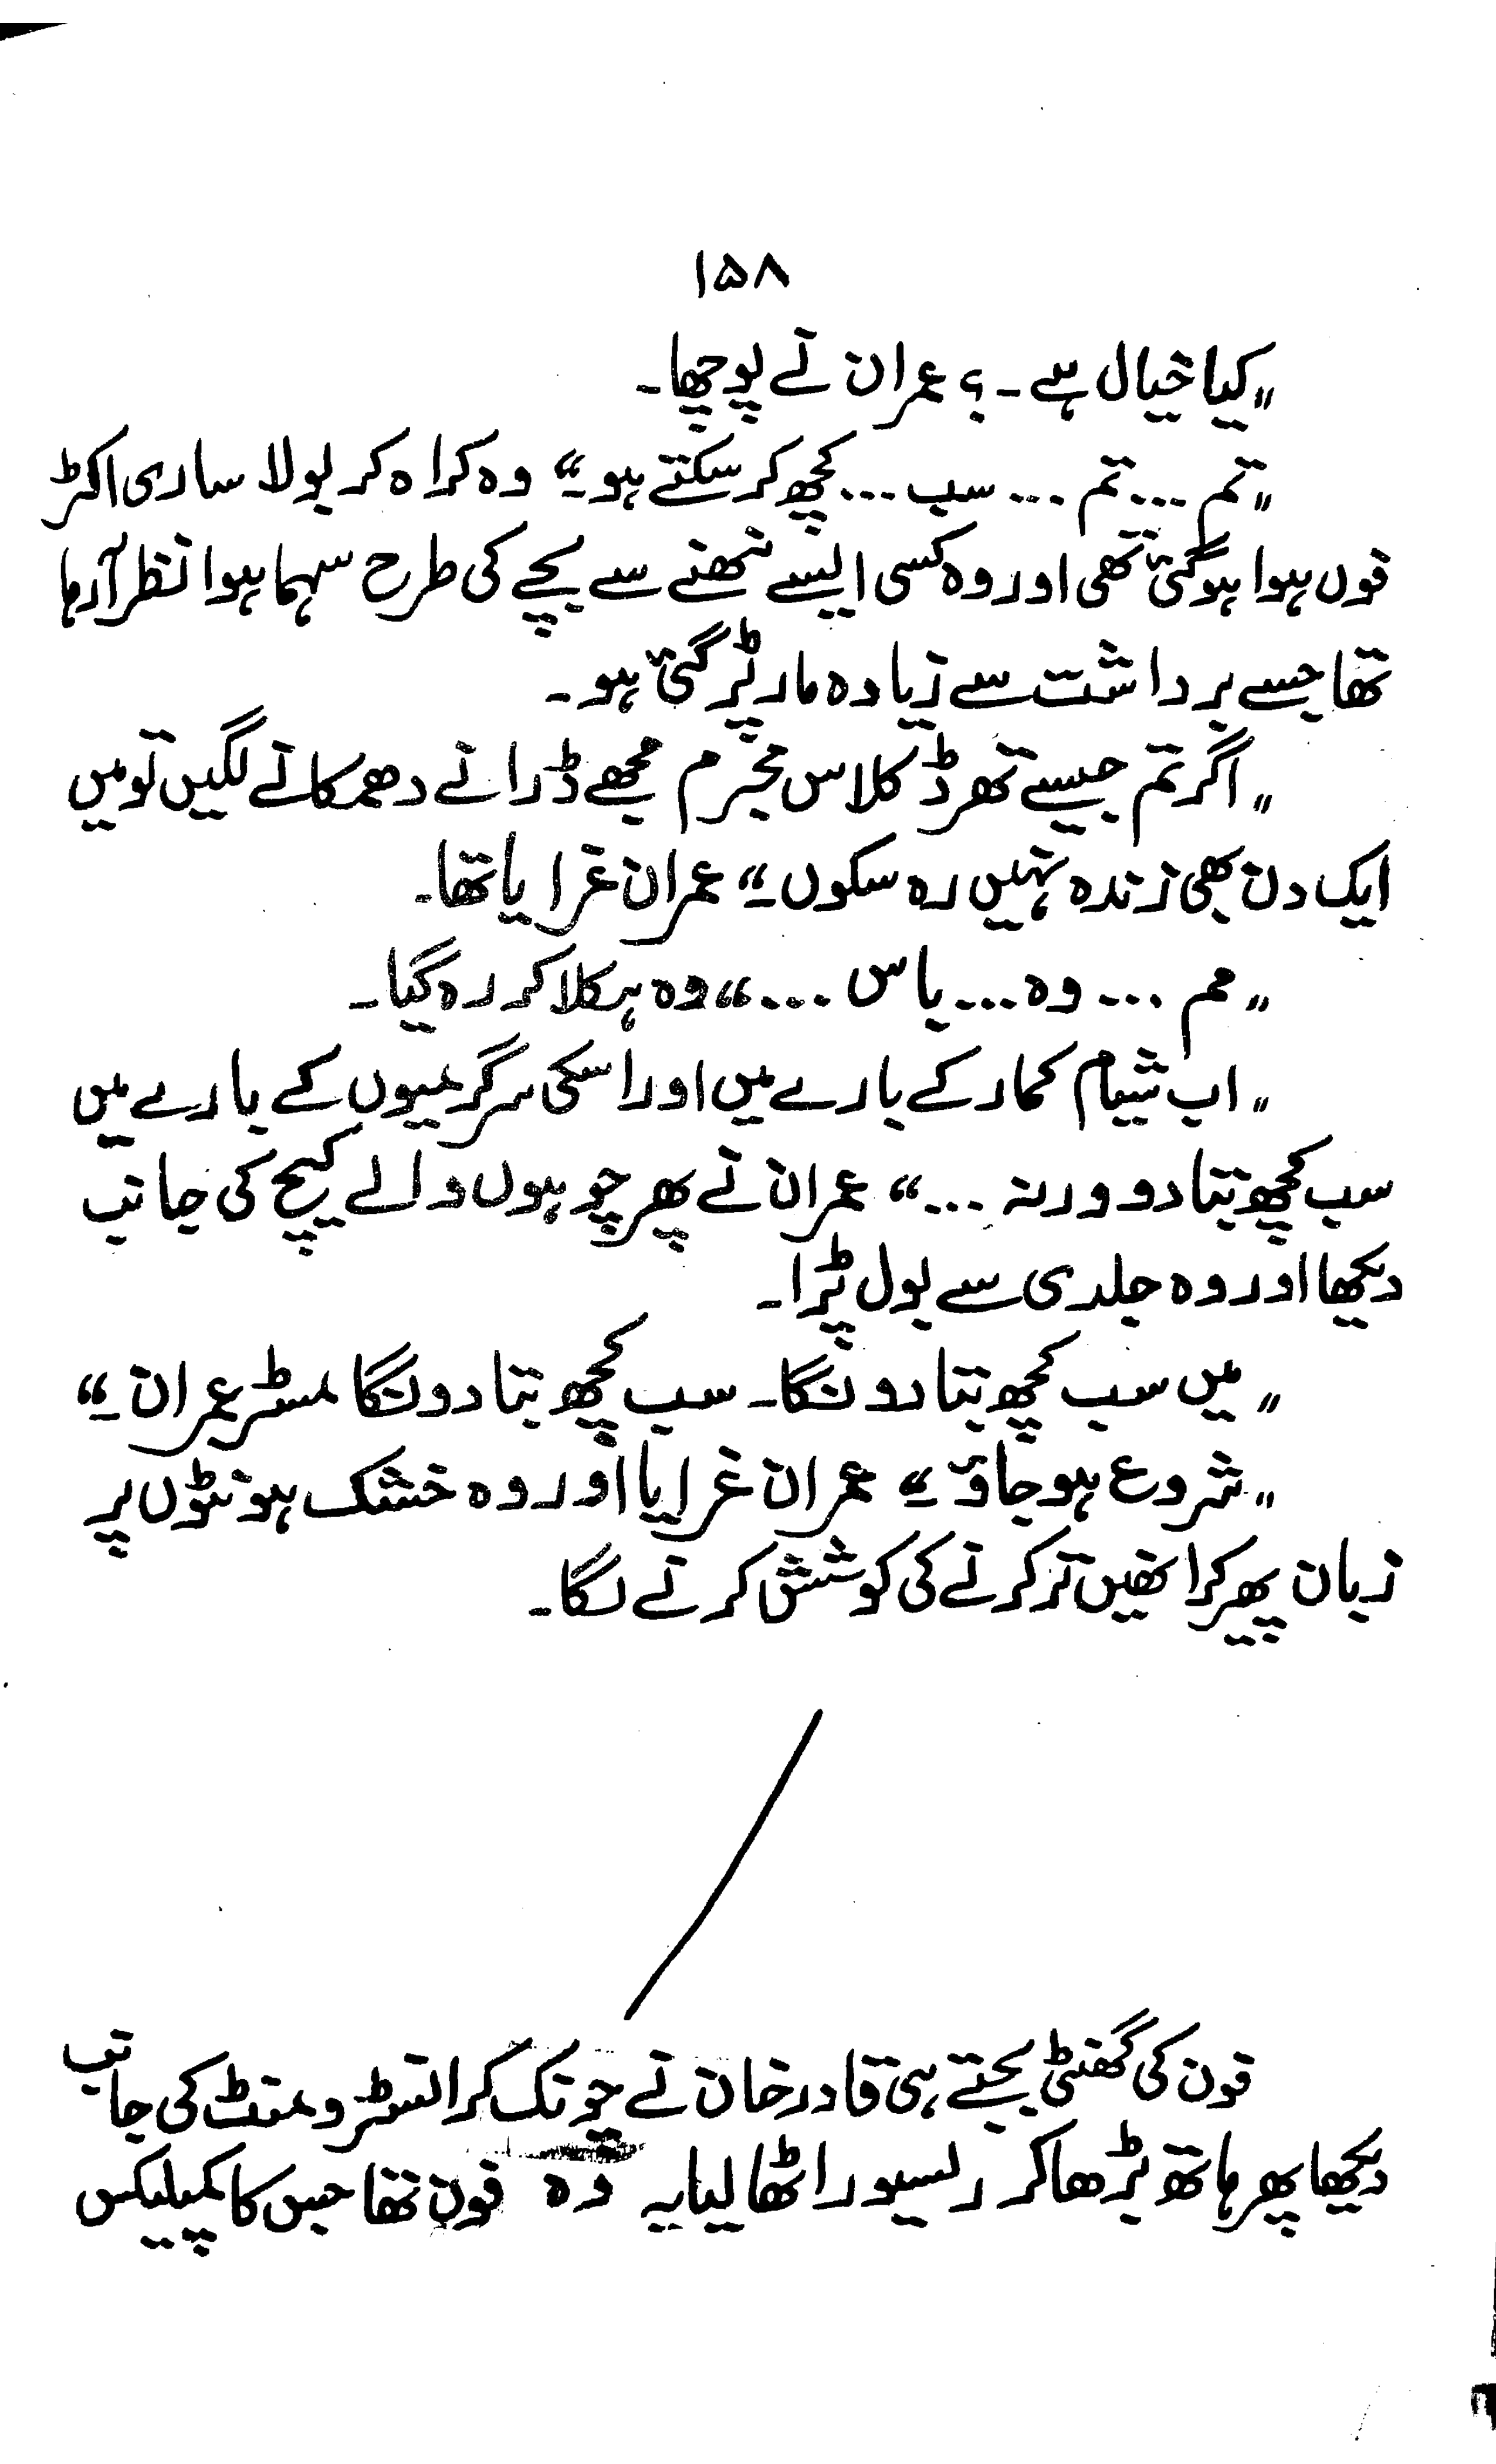 ۱۵۸
"کیا خیال ہے ۔ ؟ عمران نے پوچھا ۔
"تم ... تم ... سب ... کچھ کر سکتے ہو ۔" وہ کراہ کر بولا ساری اکڑ
فوں ہوا ہو گئی تھی اور وہ کسی ایسے ننھے سے بچے کی طرح سہما ہوا نظر آرہا
تھا جسے برداشت سے زیادہ مار پڑ گئی ہو ۔
"اگر تم جیسے تھرڈ کلاس مجرم مجھے ڈرانے دھمکانے لگیں تو میں
ایک دن بھی زندہ نہیں رہ سکوں ۔" عمران غرایا تھا ۔
"مم ... وہ ... باس ..." وہ ہکلا کر رہ گیا ۔
"اب شیام کمار کے بارے میں اور اسکی سرگرمیوں کے بارے میں
سب کچھ بتا دو ورنہ ..." عمران نے پھر چوہوں والے کیج کی جانب
دیکھا اور وہ جلدی سے بول پڑا ۔
"میں سب کچھ بتا دونگا ۔ سب کچھ بتا دونگا مسٹر عمران ۔"
"شروع ہو جاؤ ۔" عمران غرایا اور وہ خشک ہونٹوں پر
زبان پھیر کر انھیں تر کرنے کی کوشش کرنے لگا ۔
فون کی گھنٹی بجتے ہی قادر خان نے چونک کر انسٹرومنٹ کی جانب
دیکھا پھر ہاتھ بڑھا کر ریسیور اٹھا لیا ۔ یہ وہ فون تھا جس کا کمپلیکس